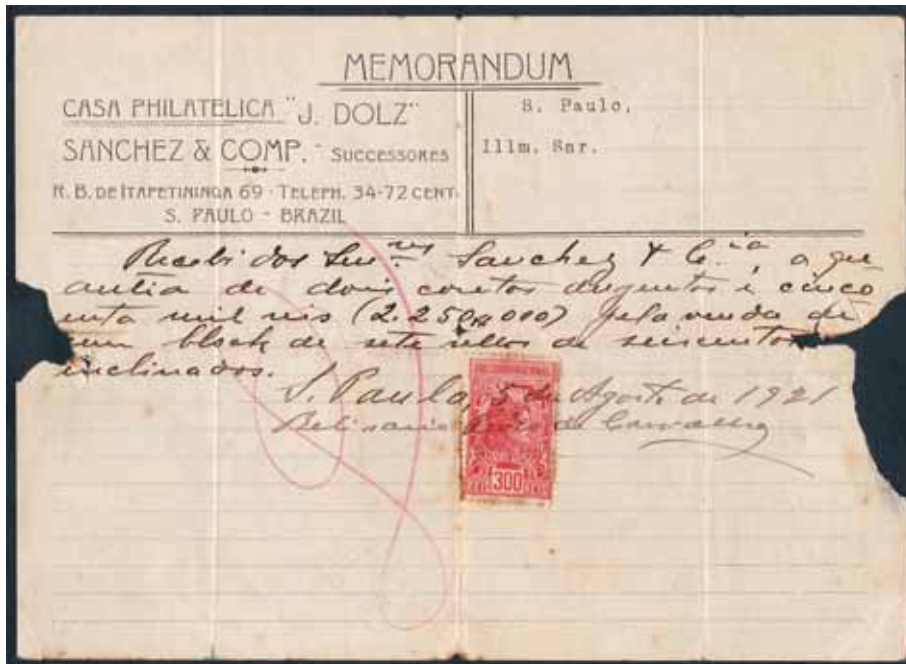 MEMORANDUM
CASA PHILATELICA "J. DOLZ"
SANCHEZ & COMP. - SUCCESSORES
R. B. DE ITAPETININGA 69 - TELEPH. 34-72 CENT.
S. PAULO - BRAZIL
S. Paulo,
Illm. Snr.
Recebi dos Snres. Sanchez & C.ia a qu
antia de dois contos duzentos i cinco
enta mil reis (2.250$000) pela venda de
um block de sete sellos de seiscentos
inclinados.
S. Paulo, 5 de Agosto de 1921
Belisario de Carvalho
300